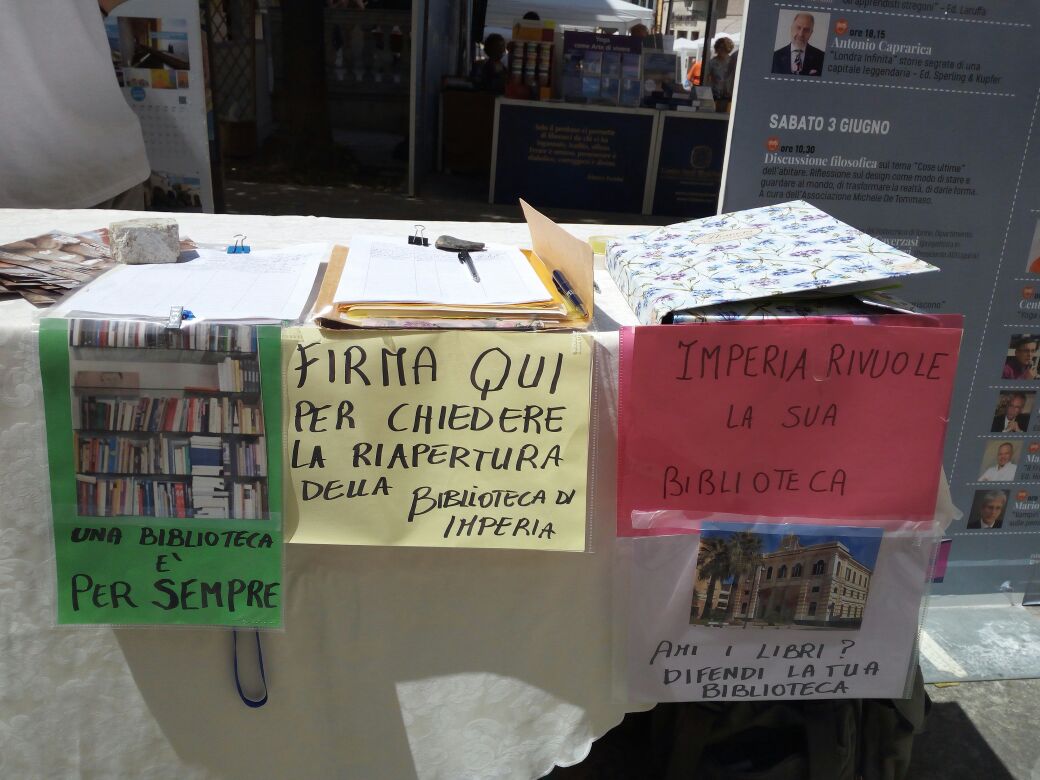 gli apprendisti stregoni" - Ed. Laruffa
ore 18,15
Antonio Caprarica
"Londra infinita" storie segrete di una
capitale leggendaria - Ed. Sperling & Kupfer
SABATO 3 GIUGNO
ore 10,30
Discussione filosofica sul tema "Cose ultime"
dell'abitare. Riflessione sul design come modo di stare e
guardare al mondo, di trasformare la realtà, di darle forma.
A cura dell'Associazione Michele De Tommaso.
Yoga
come Arte di vivere
Solo il perdono ci permette
UNA BIBLIOTECA
E'
PER SEMPRE
FIRMA QUI
PER CHIEDERE
LA RIAPERTURA
DELLA BIBLIOTECA DI
IMPERIA
IMPERIA RIVUOLE
LA SUA
BIBLIOTECA
AMI I LIBRI?
DIFENDI LA TUA
BIBLIOTECA